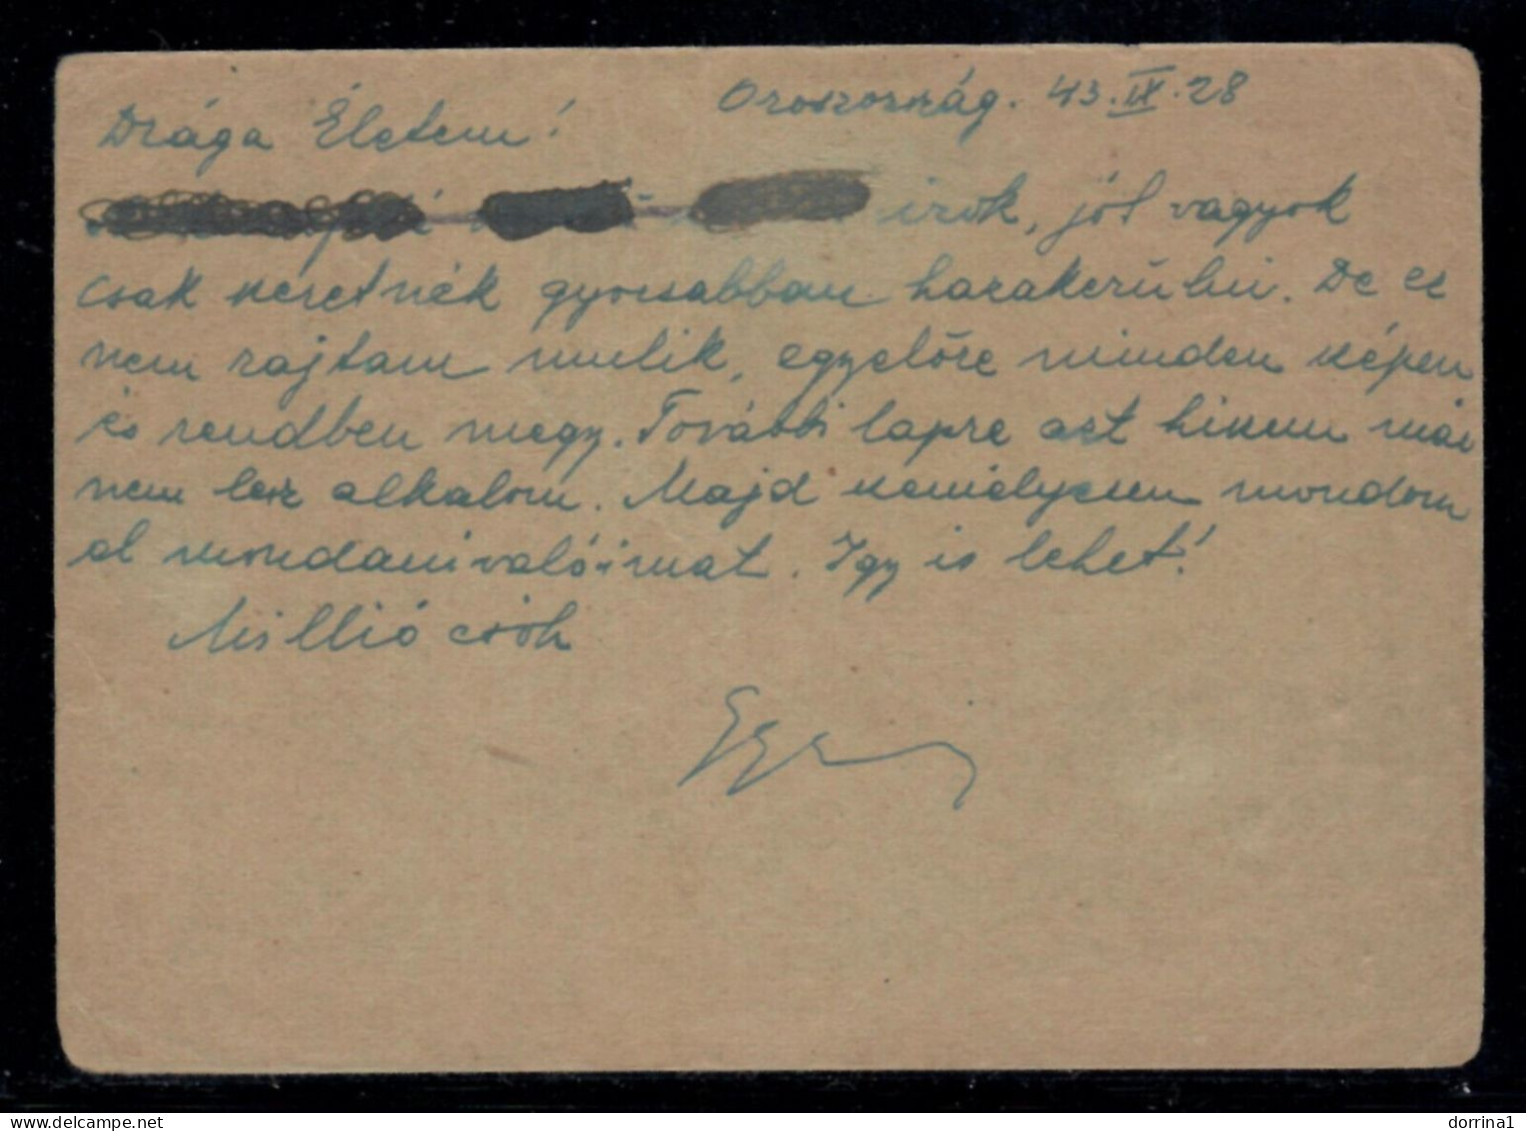 Oroszország. 43.IX.28
Drága Életem!
irok, jól vagyok
csak szeretnék gyorsabban hazakerülni. De ez
nem rajtam mulik, egyelőre minden szépen
és rendben megy. További lapre azt hiszem már
nem lesz alkalom. Majd személyesen mondom
el mondanivalóimat. Igy is lehet!
Millió csók
delcampe.net
dorrina1